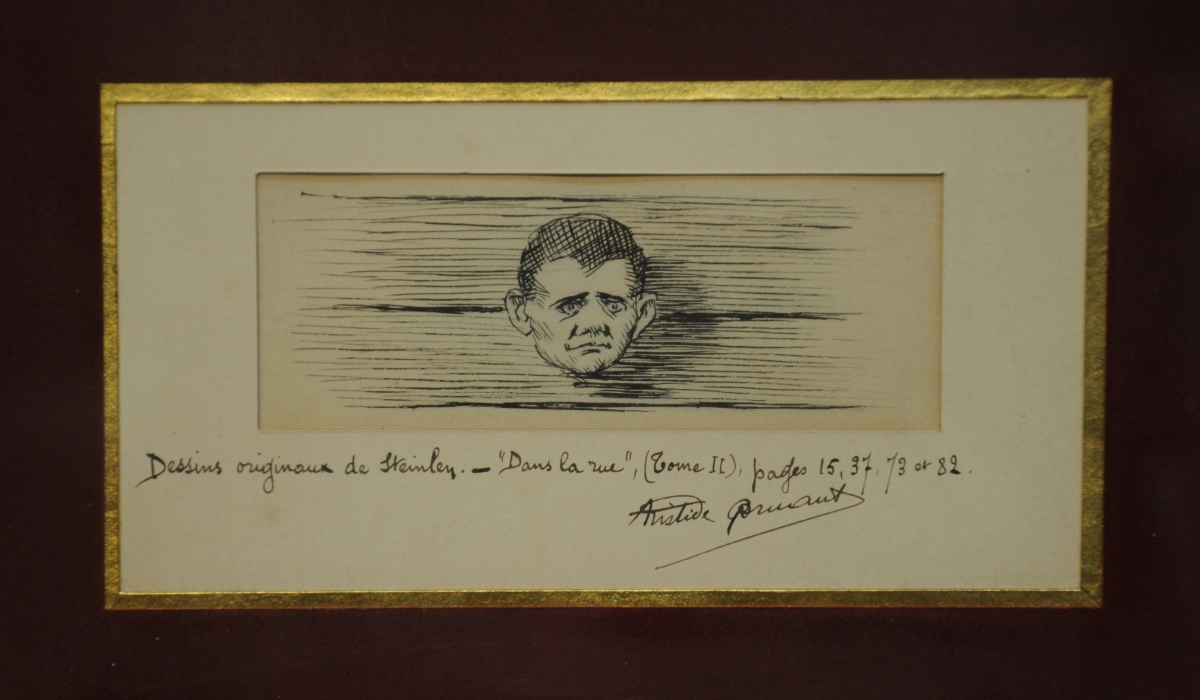 Dessins originaux de Steinlen. — "Dans la rue", (Tome II), pages 15, 37, 73 et 82.
Aristide Bruant